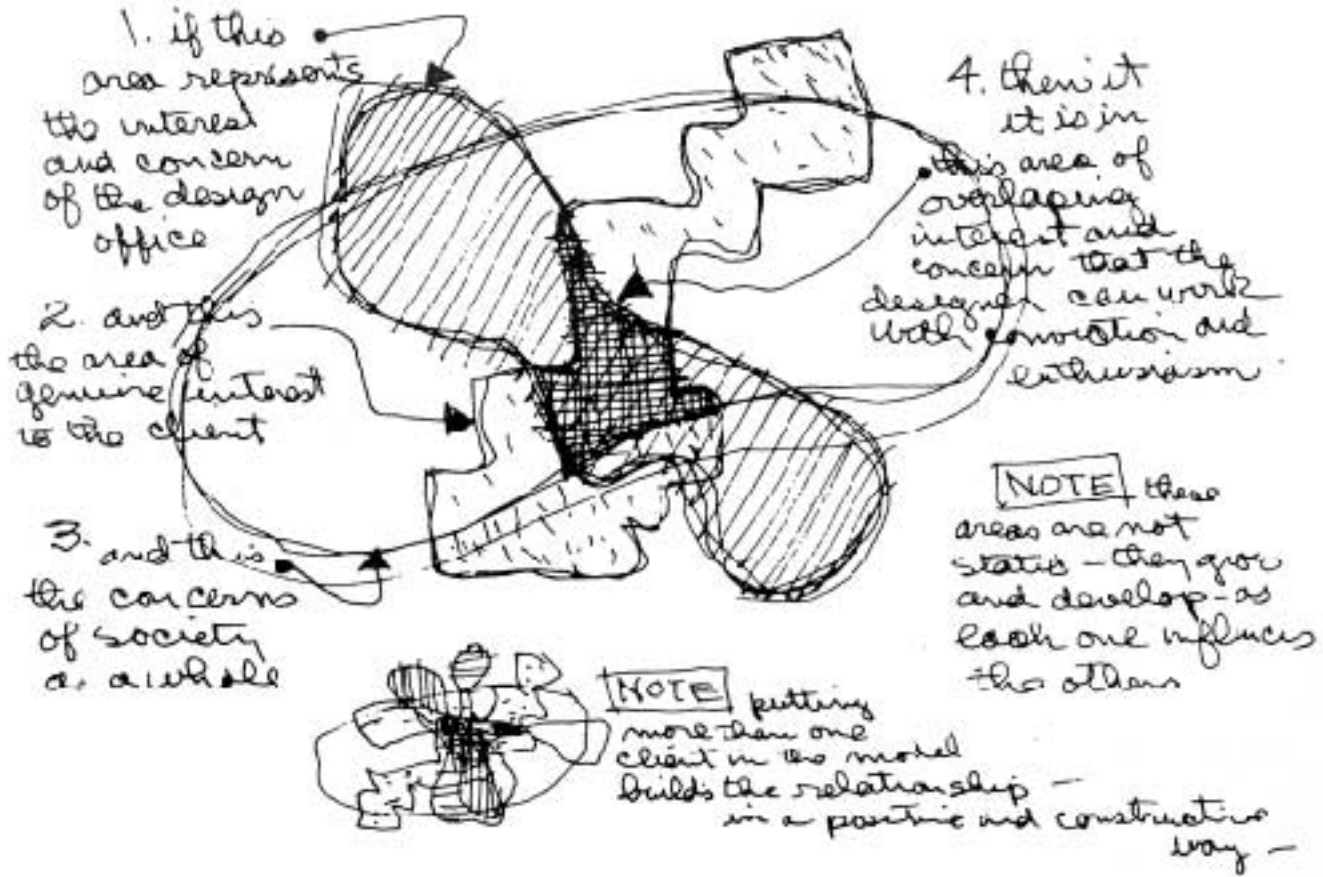 1. if this
area represents
the interest
and concern
of the design
office
2. and this
the area of
genuine interest
to the client
3. and this
the concerns
of society
as a whole
4. then it
it is in
this area of
overlaping
interest and
concern that the
designer can work
with conviction and
enthusiasm
NOTE these
areas are not
static – they grow
and develop – as
each one influences
the others
NOTE putting
more than one
client in the model
builds the relationship –
in a positive and constructive
way –